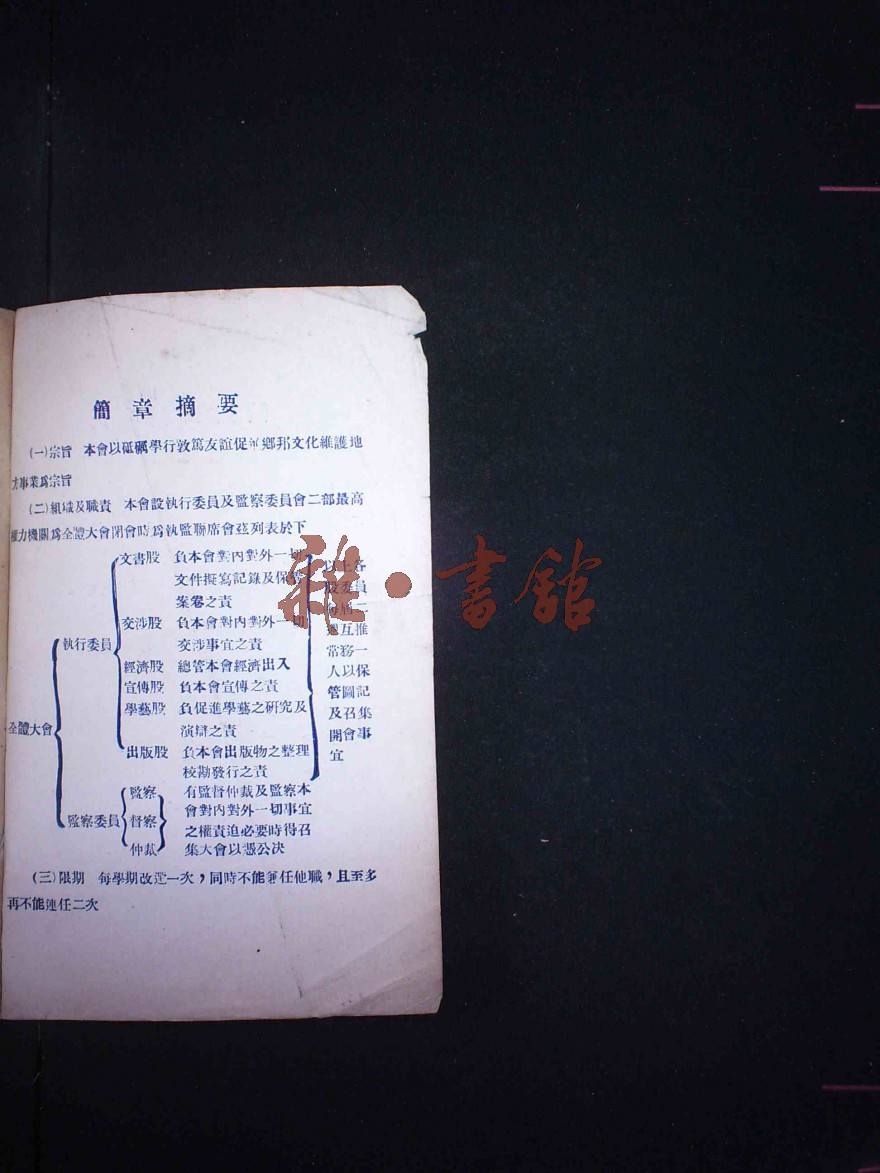 簡章摘要
(一)宗旨 本會以砥礪學行敦篤友誼促進鄉邦文化維護地
方事業爲宗旨
(二)組織及職責 本會設執行委員及監察委員會二部最高
權力機關爲全體大會閉會時爲執監聯席會玆列表於下
全體大會
執行委員
文書股 負本會對內對外一切
文件擬寫記錄及保管
案卷之責
交涉股 負本會對內對外一切
交涉事宜之責
經濟股 總管本會經濟出入
宣傳股 負本會宣傳之責
學藝股 負促進學藝之研究及
演辯之責
出版股 負本會出版物之整理
校勘發行之責
以上各
股委員
每居二
週互推
常務一
人以保
管圖記
及召集
開會事
宜
監察委員
監察
督察
仲裁
有監督仲裁及監察本
會對內對外一切事宜
之權責迫必要時得召
集大會以憑公決
(三)限期 每學期改選一次，同時不能兼任他職，且至多
再不能連任二次
雅·書館